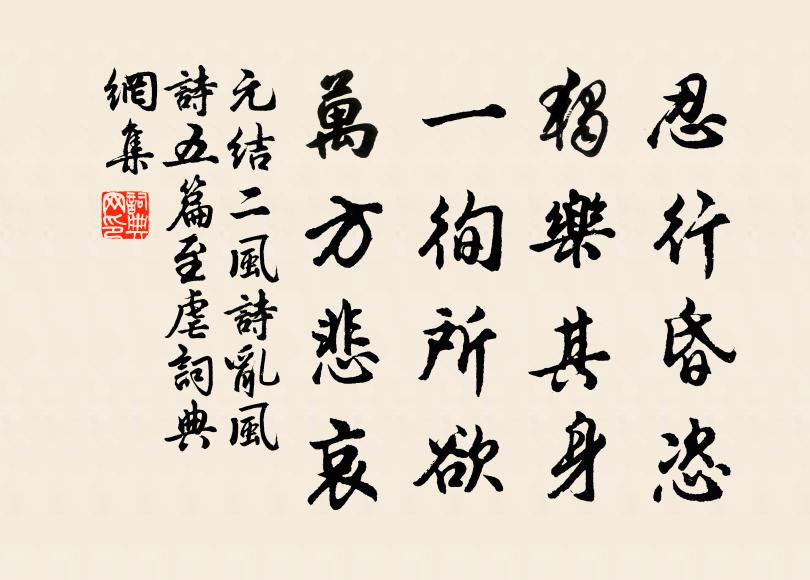 忍行昏恣
獨樂其身
一徇所欲
萬方悲哀
元结二風詩亂風
詩五篇至虐詞典
網集
詞典
网印